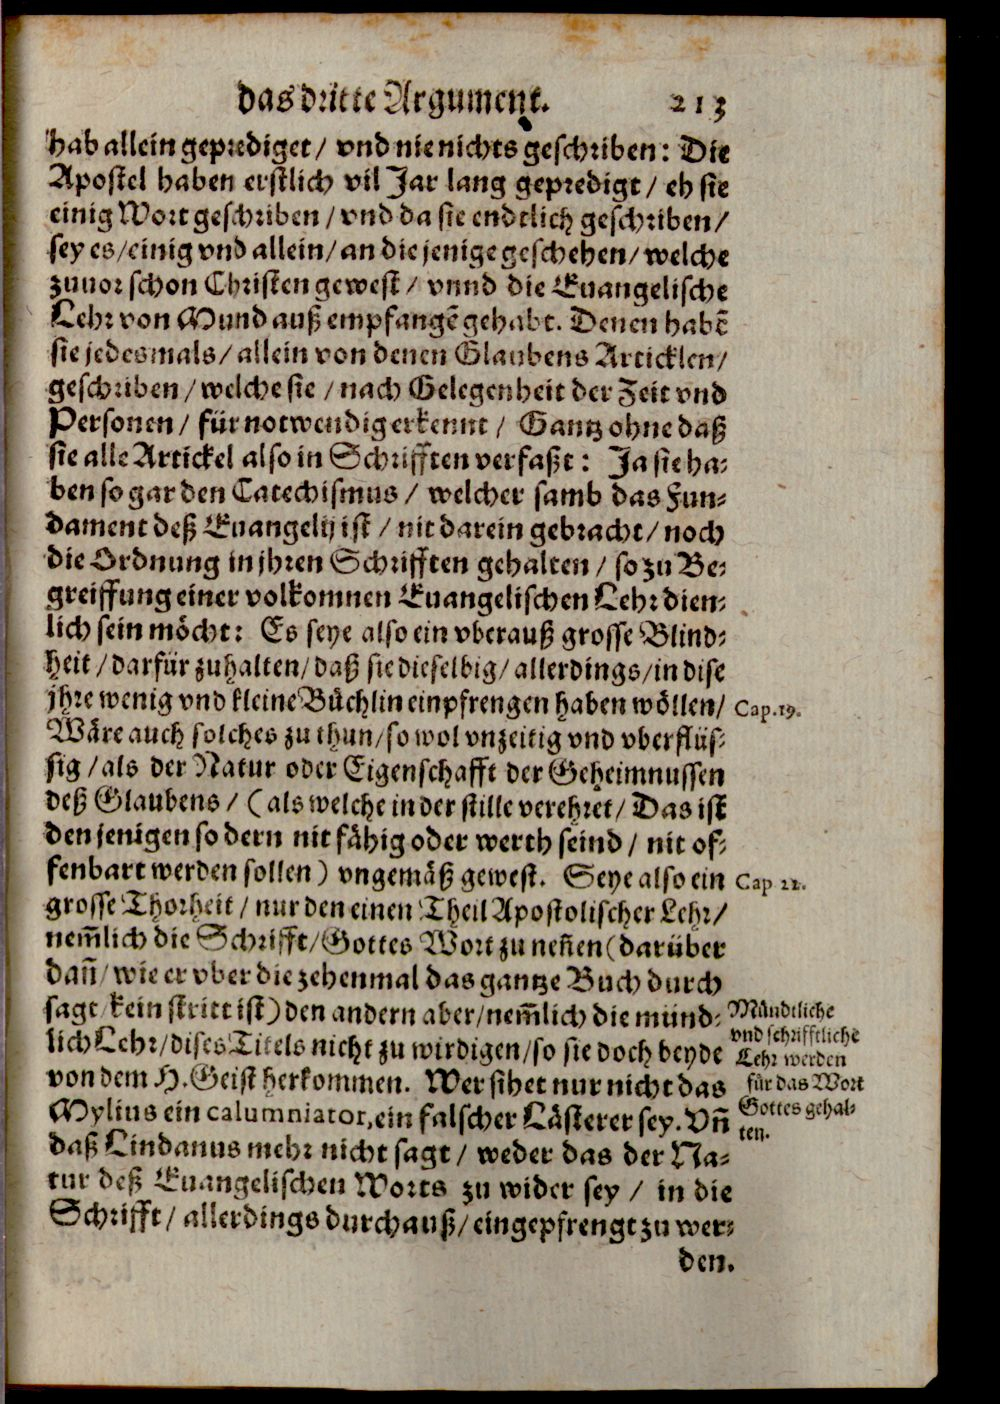 das dritte Argument. 213
hab allein geprediget / vnd nie nichts geschriben: Die
Apostel haben erstlich vil Jar lang gepredigt / eh sie
einig Wort geschriben / vnd da sie endtlich geschriben /
sey es / einig vnd allein / an die jenige geschehen / welche
zuuor schon Christen gewest / vnnd die Euangelische
Lehr von Mund auß empfangē gehabt. Denen habē
sie jedesmals / allein von denen Glaubens Articklen /
geschriben / welche sie / nach Gelegenheit der Zeit vnd
Personen / für notwendig erkennt / Gantz ohne daß
sie alle Artickel also in Schrifften verfaßt: Ja sie ha-
ben so gar den Catechismus / welcher samb das Fun-
dament deß Euangelij ist / nit darein gebracht / noch
die Ordnung in jhren Schrifften gehalten / so zu Be-
greiffung einer volkomnen Euangelischen Lehr dien-
lich sein möcht: Es seye also ein vberauß grosse Blind-
heit / darfür zuhalten / daß sie dieselbig / allerdings / in dise
jhre wenig vnd kleine Büchlin einpfrengen haben wöllen /
Cap.19.
Wäre auch solches zu thun / so wol vnzeitig vnd vberflüs-
sig / als der Natur oder Eigenschafft der Geheimnussen
deß Glaubens / (als welche in der stille verehret / Das ist
den jenigen so dern nit fähig oder werth seind / nit of-
fenbart werden sollen) vngemäß gewest. Seye also ein
Cap 22.
grosse Thorheit / nur den einen Theil Apostolischer Lehr /
nem̄lich die Schrifft / Gottes Wort zu neñen (darüber
dañ / wie er vber die zehenmal das gantze Buch durch
sagt / kein stritt ist) den andern aber / nem̄lich die münd-
lich Lehr / dises Titels nicht zu wirdigen / so sie doch beyde
von dem H. Geist herkommen. Wer sihet nur nicht das
Mylius ein calumniator, ein falscher Lästerer sey. Vñ
daß Lindanus mehr nicht sagt / weder das der Na-
tur deß Euangelischen Worts zu wider sey / in die
Schrifft / allerdings durchauß / eingepfrengt zu wer-
den.
Mündtliche
vnd schrifftliche
Lehr werden
für das Wort
Gottes gehal-
ten.